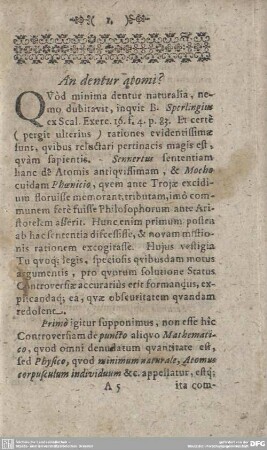 ( 1. )
An dentur atomi?
QVòd minima dentur naturalia, ne-
mo dubitavit, inqvit B. Sperlingius
ex Scal. Exerc. 16. f. 4. p. 83. Et certè
( pergit ulterius ) rationes evidentissimæ
sunt, qvibus reluctari pertinacis magis est,
qvàm sapientis. Sennertus sententiam
hanc dè Atomis antiqvissimam, & Mocho
cuidam Phœnicio, qvem ante Trojæ excidi-
um floruisse memorant, tributam, imò com-
munem ferè fuisse Philosophorum ante Ari-
stotelem asserit. Hunc enim primum postea
ab hac sententia discessisse, & novam mistio-
nis rationem excogitasse. Hujus vestigia
Tu qvoq; legis, speciosis qvibusdam motus
argumentis, pro qvorum solutione Status
Controversiæ accuratiùs erit formandus, ex-
plicandaq; ea, qvæ obscuritatem qvandam
redolent.
Primò igitur supponimus, non esse hîc
Controversiam de puncto aliqvo Mathemati-
co, qvod omni denudatum qvantitate est,
sed Physico, qvod minimum naturale, Atomus
corpusculum individuum &c. appellatur, estq;
A 5
ita com-